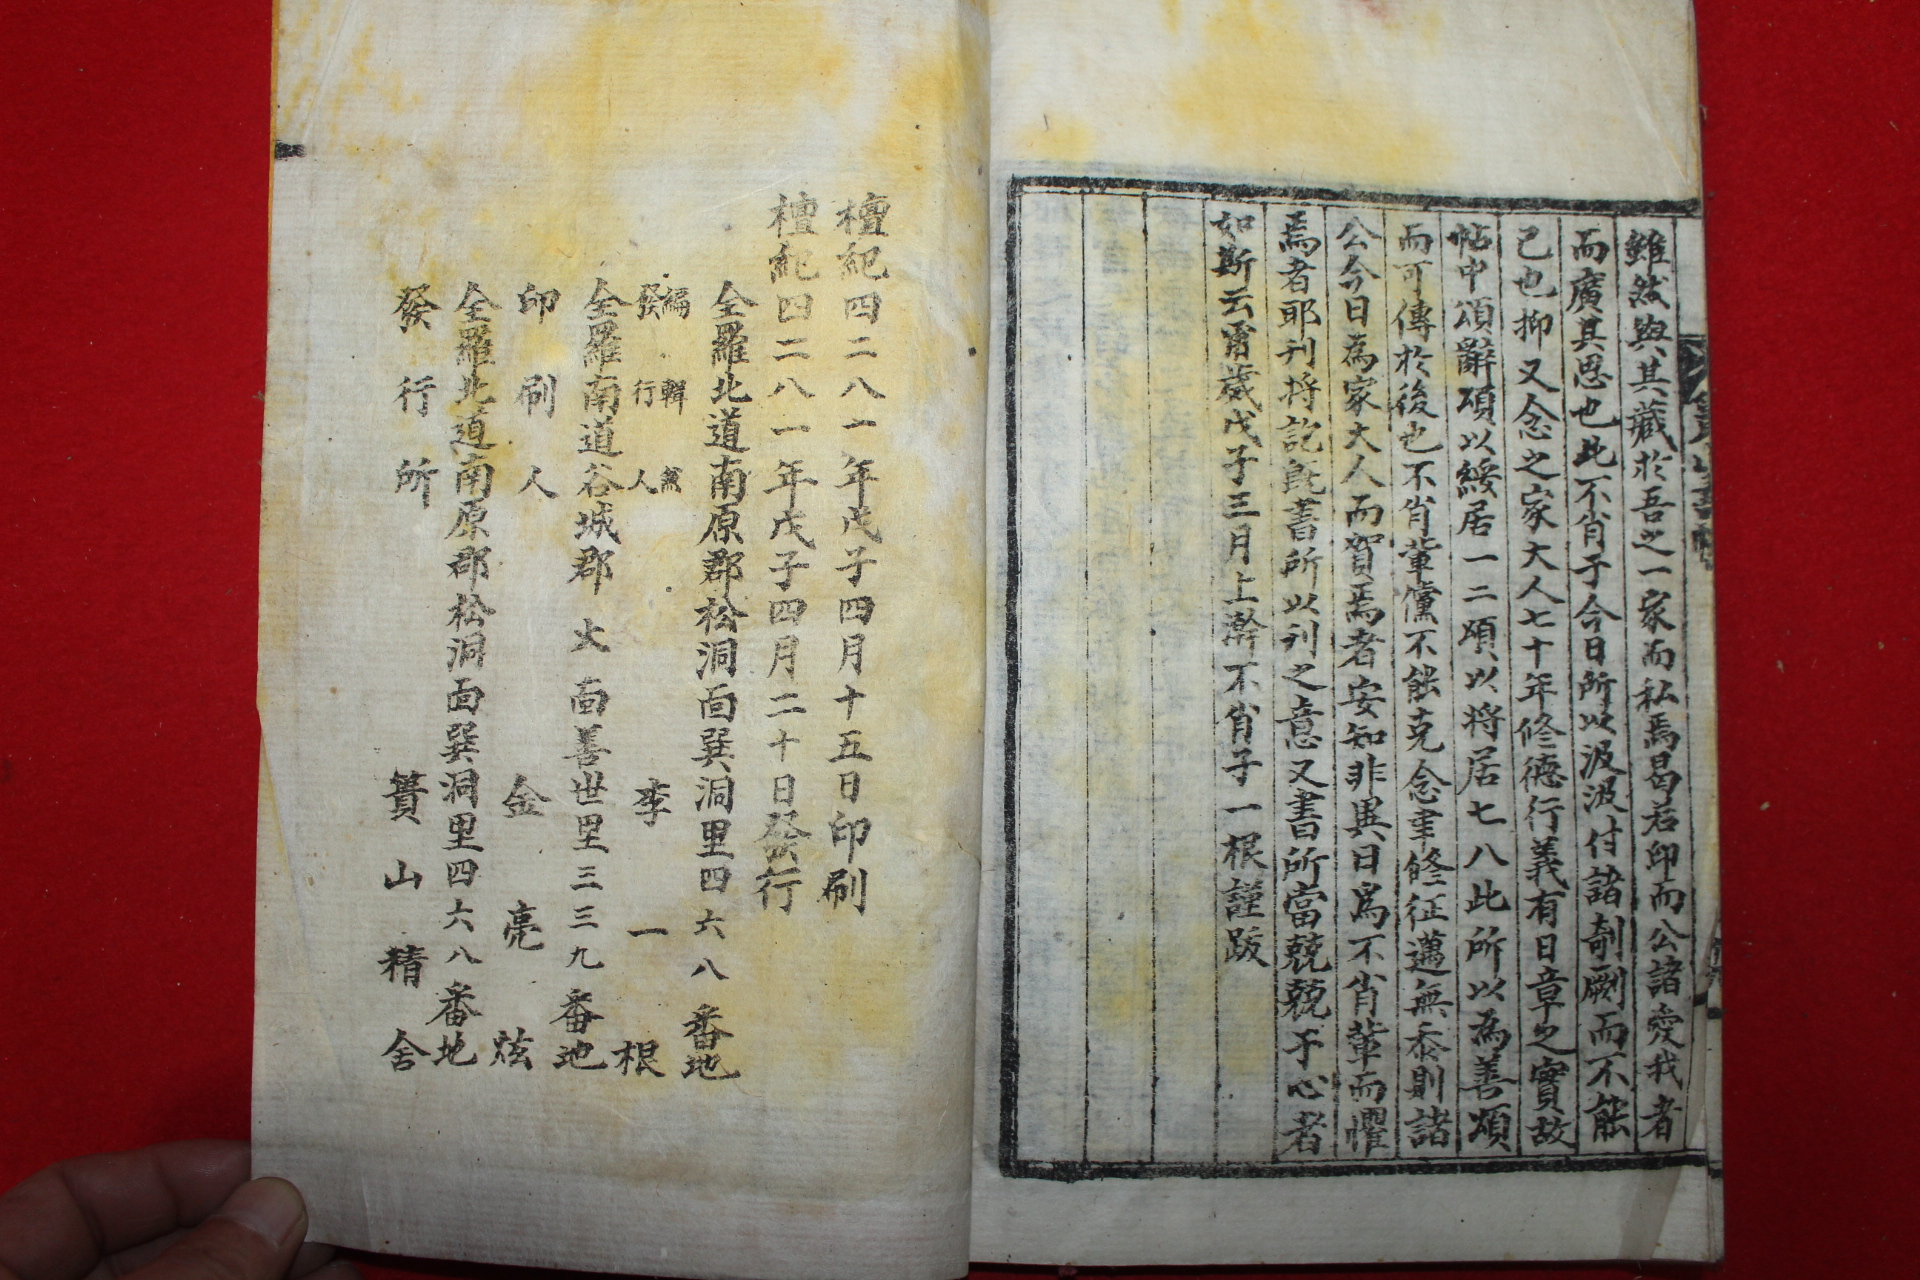 雖然與其藏於吾之一家而私焉曷若印而公諸愛我者
而廣其思也此不肖子今日所以汲汲付諸剞劂而不能
已也抑又念之家大人七十年修德行義有日章之實故
帖中頌辭頌以綏居一二頌以將居七八此所以為善頌
而可傳於後也不肖輩儻不能克念聿修征邁無忝則諸
公今日為家大人而賀焉者安知非異日爲不肖輩而懼
焉者耶刊將訖旣書所以刊之意又書所當兢兢于心者
如斯云甭歲戊子三月上澣不肖子一根謹跋
檀紀四二八一年戊子四月十五日印刷
檀紀四二八一年戊子四月二十日發行
全羅北道南原郡松洞面巽洞里四六八番地
編輯兼
發行人 李一根
全羅南道谷城郡火面善世里三三九番地
印刷人 金亳炫
全羅北道南原郡松洞面巽洞里四六八番地
發行所 簣山精舍